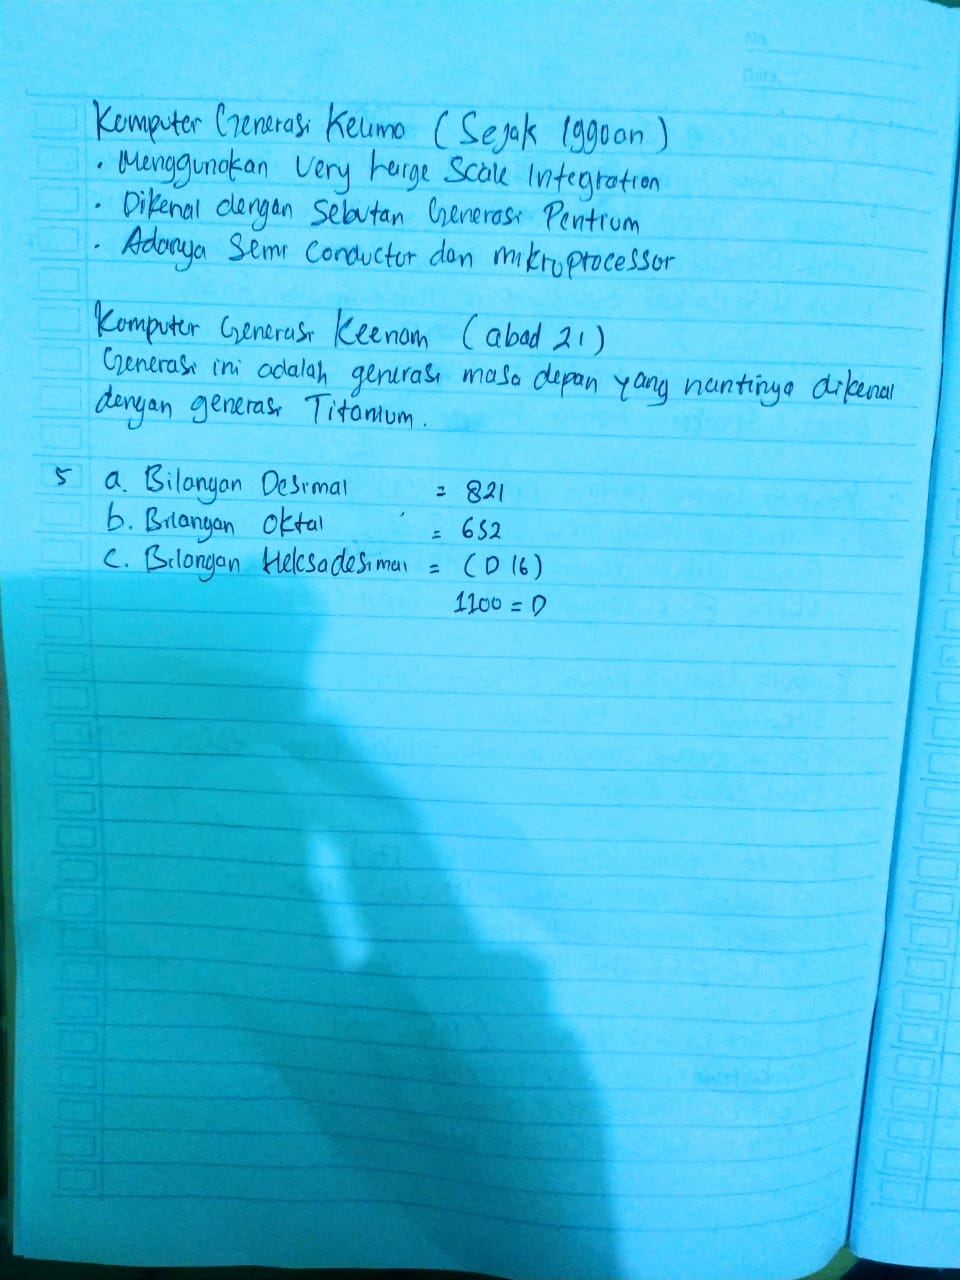 No.
Date.
Komputer Generasi Kelima (Sejak 1990an)
• Menggunakan Very Large Scale Integration
• Dikenal dengan Sebutan Generasi Pentium
• Adanya Semi Conductor dan mikroprocessor
Komputer Generasi Keenam (abad 21)
Generasi ini adalah generasi masa depan yang nantinya dikenal
dengan generasi Titanium.
5 a. Bilangan Desimal = 821
b. Bilangan Oktal = 652
c. Bilangan Heksadesimal = (D 16)
1100 = D